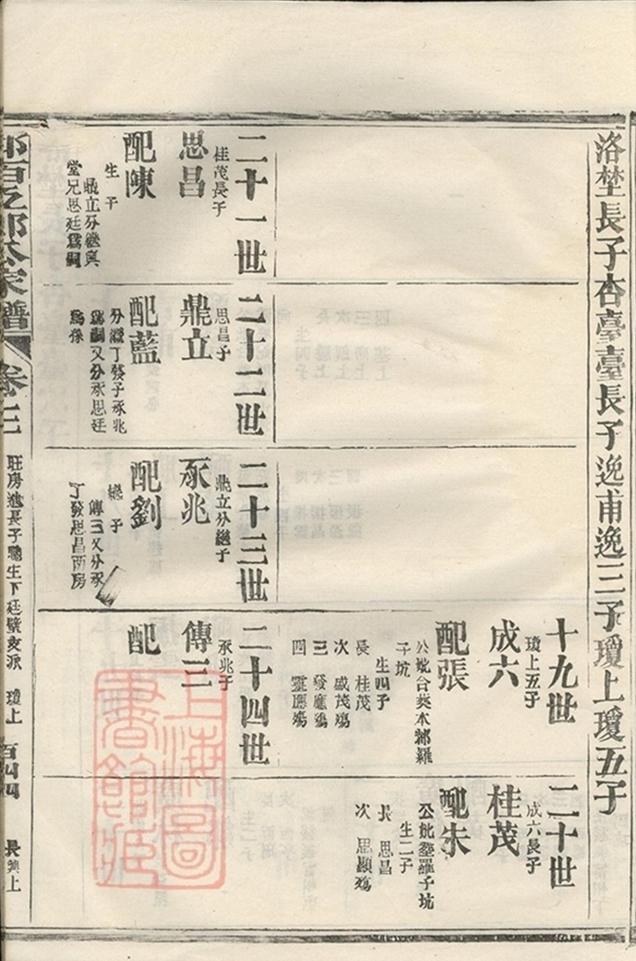 洛埜長子杏臺臺長子逸甫逸三子瓊上瓊五子
十九世
瓊上五子
成六
配張
公妣合葬本鄉羅
子坑
生四子
長 桂茂
次 盛茂殤
三 發應殤
四 靈應殤
二十世
成六長子
桂茂
配朱
公妣塟羅子坑
生二子
長 思昌
次 思顯殤
二十一世
桂茂長子
思昌
配陳
生子
鼎立分繼與
堂兄思廷爲嗣
二十二世
思昌子
鼎立
配藍
分繼丁發子承兆
爲嗣又分承思廷
爲孫
二十三世
鼎立分繼子
承兆
配劉
繼子
傳三又分承
丁發思昌兩房
二十四世
承兆子
傳三
配
百之郎公家譜
卷之二
旺房逸長子聰生下廷璧支派 瓊上 百四四 長 上
上海圖書館藏